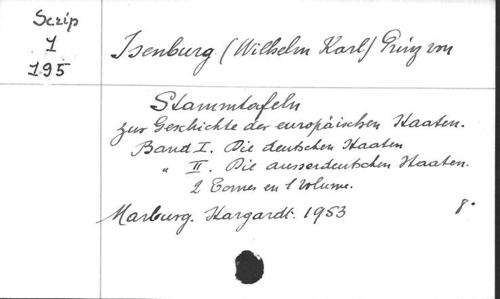 Scrip
1
195
Isenburg (Wilhelm Karl) Prinz von
Stammtafeln
zur Geschichte der europäischen Staaten.
Band I. Die deutschen Staaten
" II. Die ausserdeutschen Staaten.
2 Tomes en 1 Volume.
Marburg. Stargardt. 1953 8°